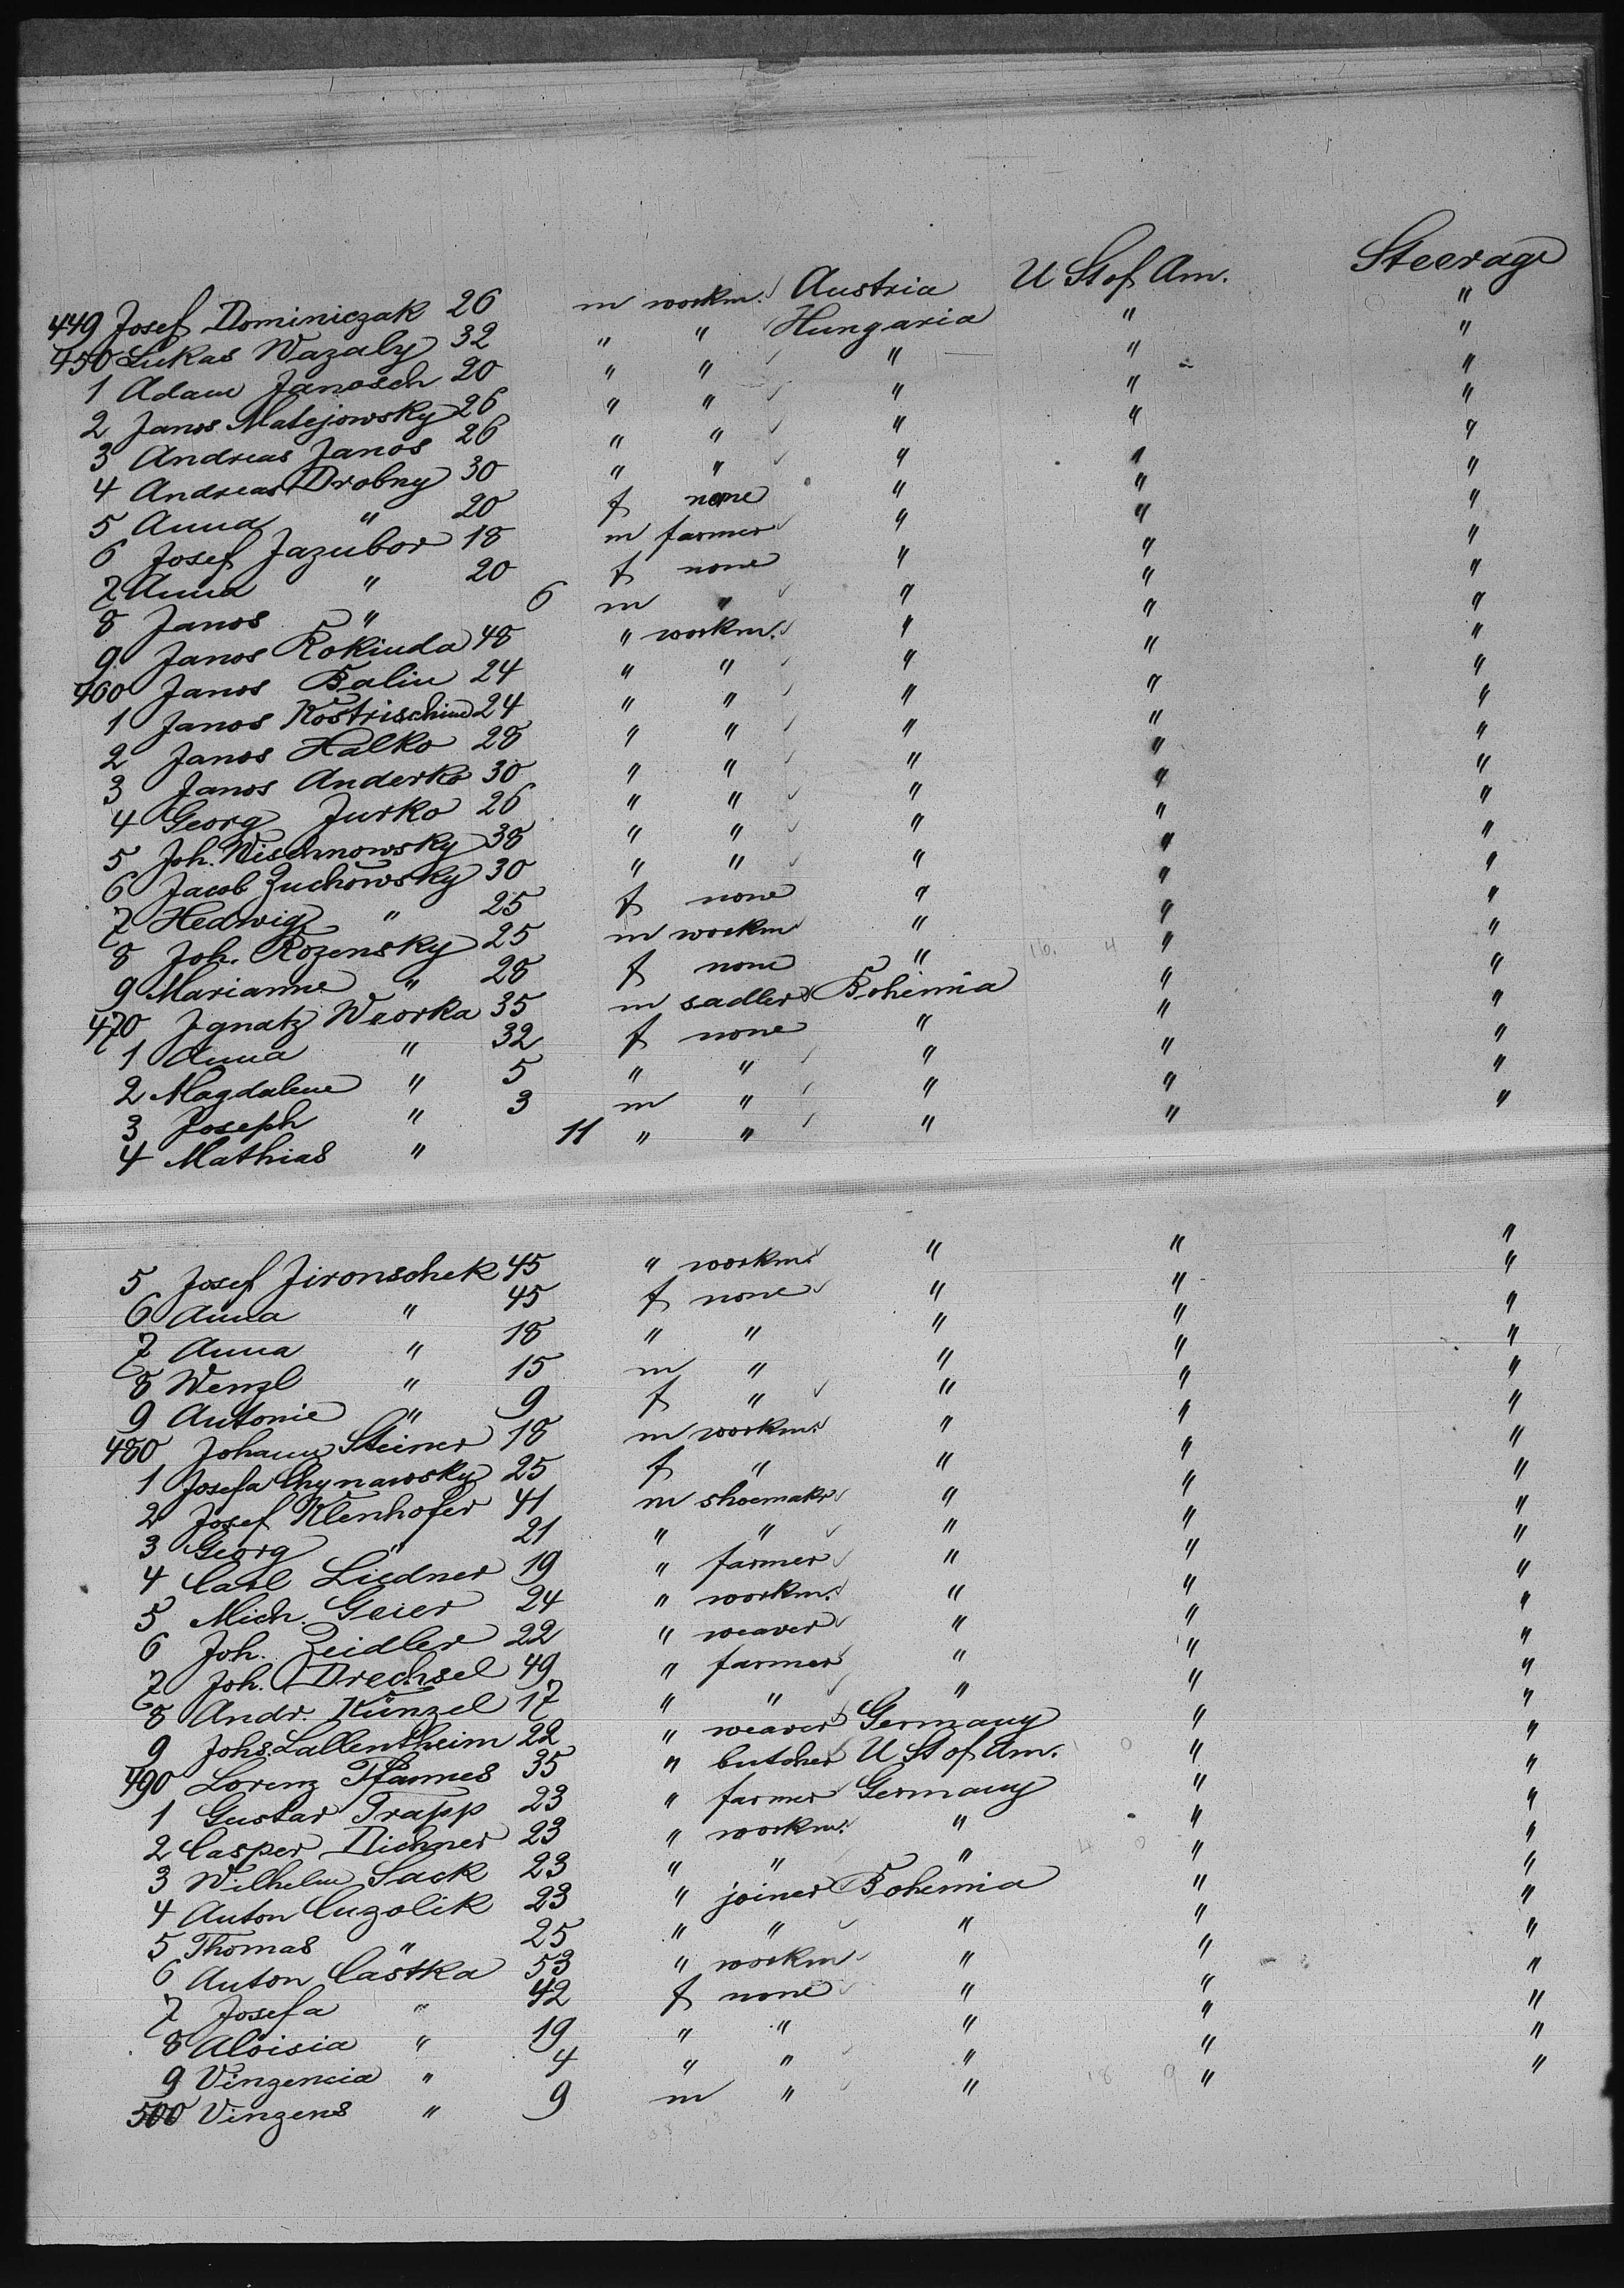 449 Josef Dominiczak 26 m workm. Austria U St of Am. Steerage
450 Lukas Wazaly 32 " " Hungaria " "
1 Adam Janosch 20 " " " " "
2 Janos Matejowsky 26 " " " " "
3 Andreas Janos 26 " " " " "
4 Andreas Drobny 30 " " " " "
5 Anna " 20 f none " " "
6 Josef Jazubor 18 m farmer " " "
7 Anna " 20 f none " " "
8 Janos " 6 m " " " "
9 Janos Kokinda 48 " workm. " " "
460 Janos Balin 24 " " " " "
1 Janos 24 " " " " "
2 Janos Halko 28 " " " " "
3 Janos Anderko 30 " " " " "
4 Georg Jurko 26 " " " " "
5 Joh. Wischnowsky 38 " " " " "
6 Jacob Zuchowsky 30 " " " " "
7 Hedwig " 25 f none " " "
8 Joh. Rozensky 25 m workm " " "
9 Marianne " 28 f none " " "
470 Ignatz Worka 35 m sadler Bohemia " "
1 Anna " 32 f none " " "
2 Magdalene " 5 " " " " "
3 Joseph " 3 m " " " "
4 Mathias " 11 " " " " "
5 Josef Jironschek 45 " workm. " " "
6 Anna " 45 f none " " "
7 Anna " 18 " " " " "
8 Wenzl " 15 m " " " "
9 Antonie " 9 f " " " "
480 Johann Steiner 18 m workm. " " "
1 Josefa Chynawsky 25 f " " " "
2 Josef Klenhofer 41 m shoemakr " " "
3 Georg " 21 " " " " "
4 Carl Liedner 19 " farmer " " "
5 Mich. Geier 24 " workm. " " "
6 Joh. Zeidler 22 " weaver " " "
7 Joh. Drechsel 49 " farmer " " "
8 Andr. Künzel 17 " " " " "
9 Johs. Lallentheim 22 " weaver Germany " "
490 Lorenz Pfannes 35 " butcher U St of Am. " "
1 Gustav Trapp 23 " farmer Germany " "
2 Casper Dichner 23 " workm. " " "
3 Wilhelm Sack 23 " " " " "
4 Anton Cuzolik 23 " joiner Bohemia " "
5 Thomas " 25 " " " " "
6 Anton Castka 53 " workm " " "
7 Josefa " 42 f none " " "
8 Aloisia " 19 " " " " "
9 Vinzencia " 4 " " " " "
500 Vinzens " 9 m " " " "